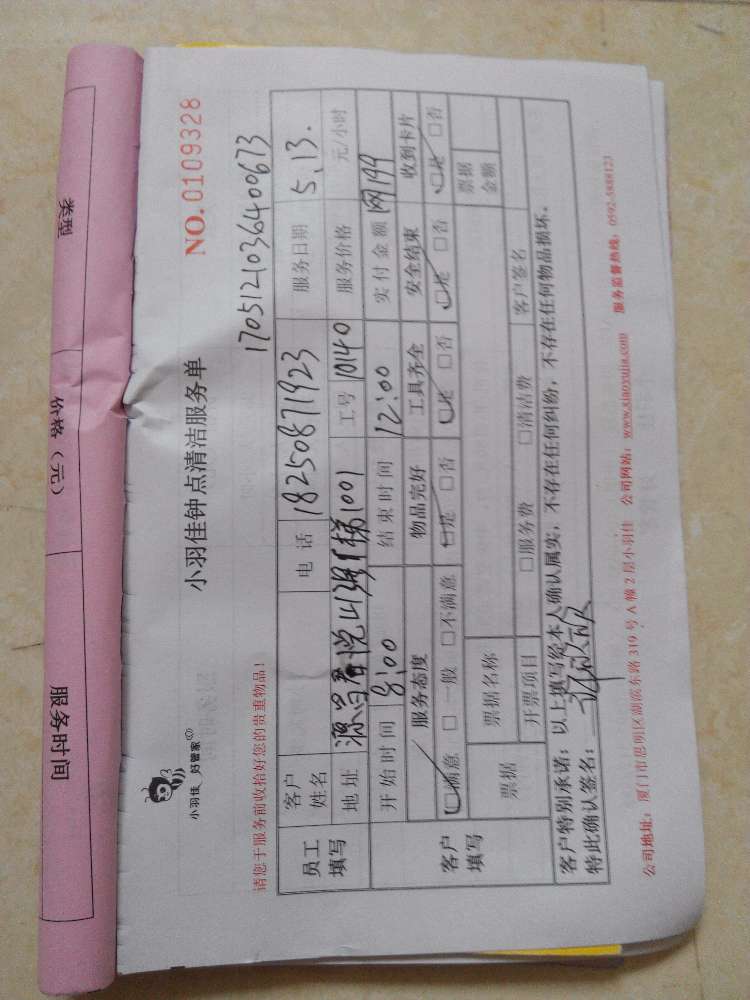 类型
价格（元）
服务时间
小羽佳 好管家
小羽佳钟点清洁服务单
NO. 0109328
请您于服务前收拾好您的贵重物品！
1705121036400673
员工填写
客户姓名
电话 18250871923
服务日期 5.13.
地址 源昌君悦山 1001
工号 10140
服务价格 元/小时
开始时间 8:00
结束时间 12:00
实付金额 网199
客户填写
服务态度 物品完好 工具齐全 安全结束 收到卡片
☑满意 □一般 □不满意 ☑是 □否 ☑是 □否 ☑是 □否 ☑是 □否
票据
票据名称
票据金额
开票项目 □服务费 □清洁费
客户签名
客户特别承诺：以上填写经本人确认属实，不存在任何纠纷，不存在任何物品损坏。
特此确认签名：
公司地址：厦门市思明区湖滨东路 319 号 A 幢 2 层小羽佳 公司网站：www.xiaoyujia.com 服务监督热线：0592-5888123